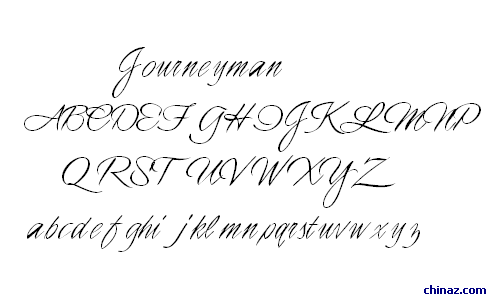 Journeyman
ABCDEF GHIJKLMNP
QRST UVWXYZ
abcdefghi jkl mnpqrstuvwxyz
chinaz.com